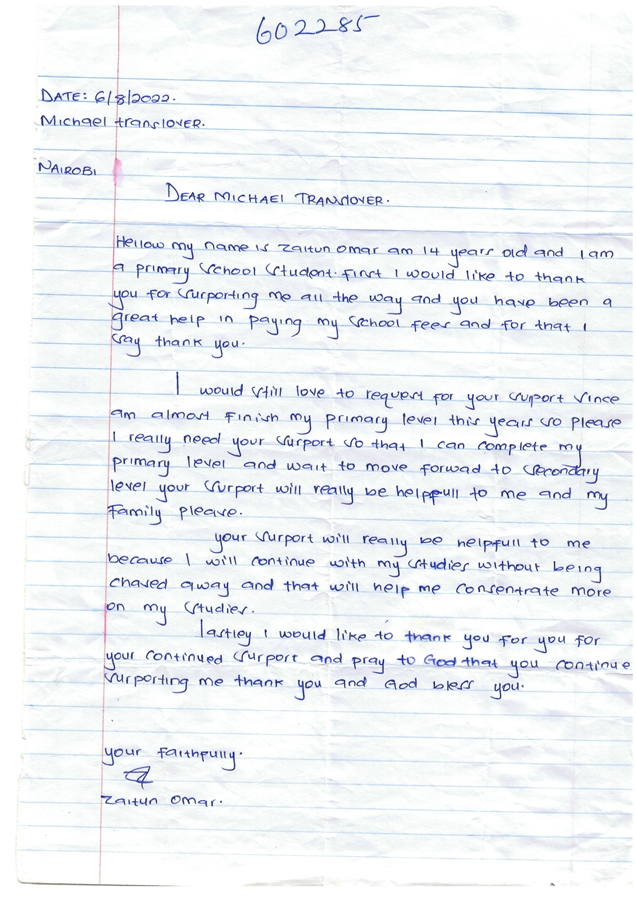 602285
DATE: 6/8/2022.
Michael translover.
NAIROBI
DEAR MICHAEL TRANSLOVER.
Hellow my name is Zaitun Omar am 14 years old and I am
a primary school student. First I would like to thank
you for surporting me all the way and you have been a
great help in paying my school fees and for that I
say thank you.
I would still love to request for your suport since
am almost finish my primary level this years so please
I really need your surport so that I can complete my
primary level and wait to move forwad to secondary
level your surport will really be helpfull to me and my
family please.
your surport will really be helpfull to me
because I will continue with my studies without being
chased away and that will help me consentrate more
on my studies.
lastley I would like to thank you for you for
your continued surport and pray to God that you continue
surporting me thank you and God bless you.
your faithfully.
Zaitun Omar.